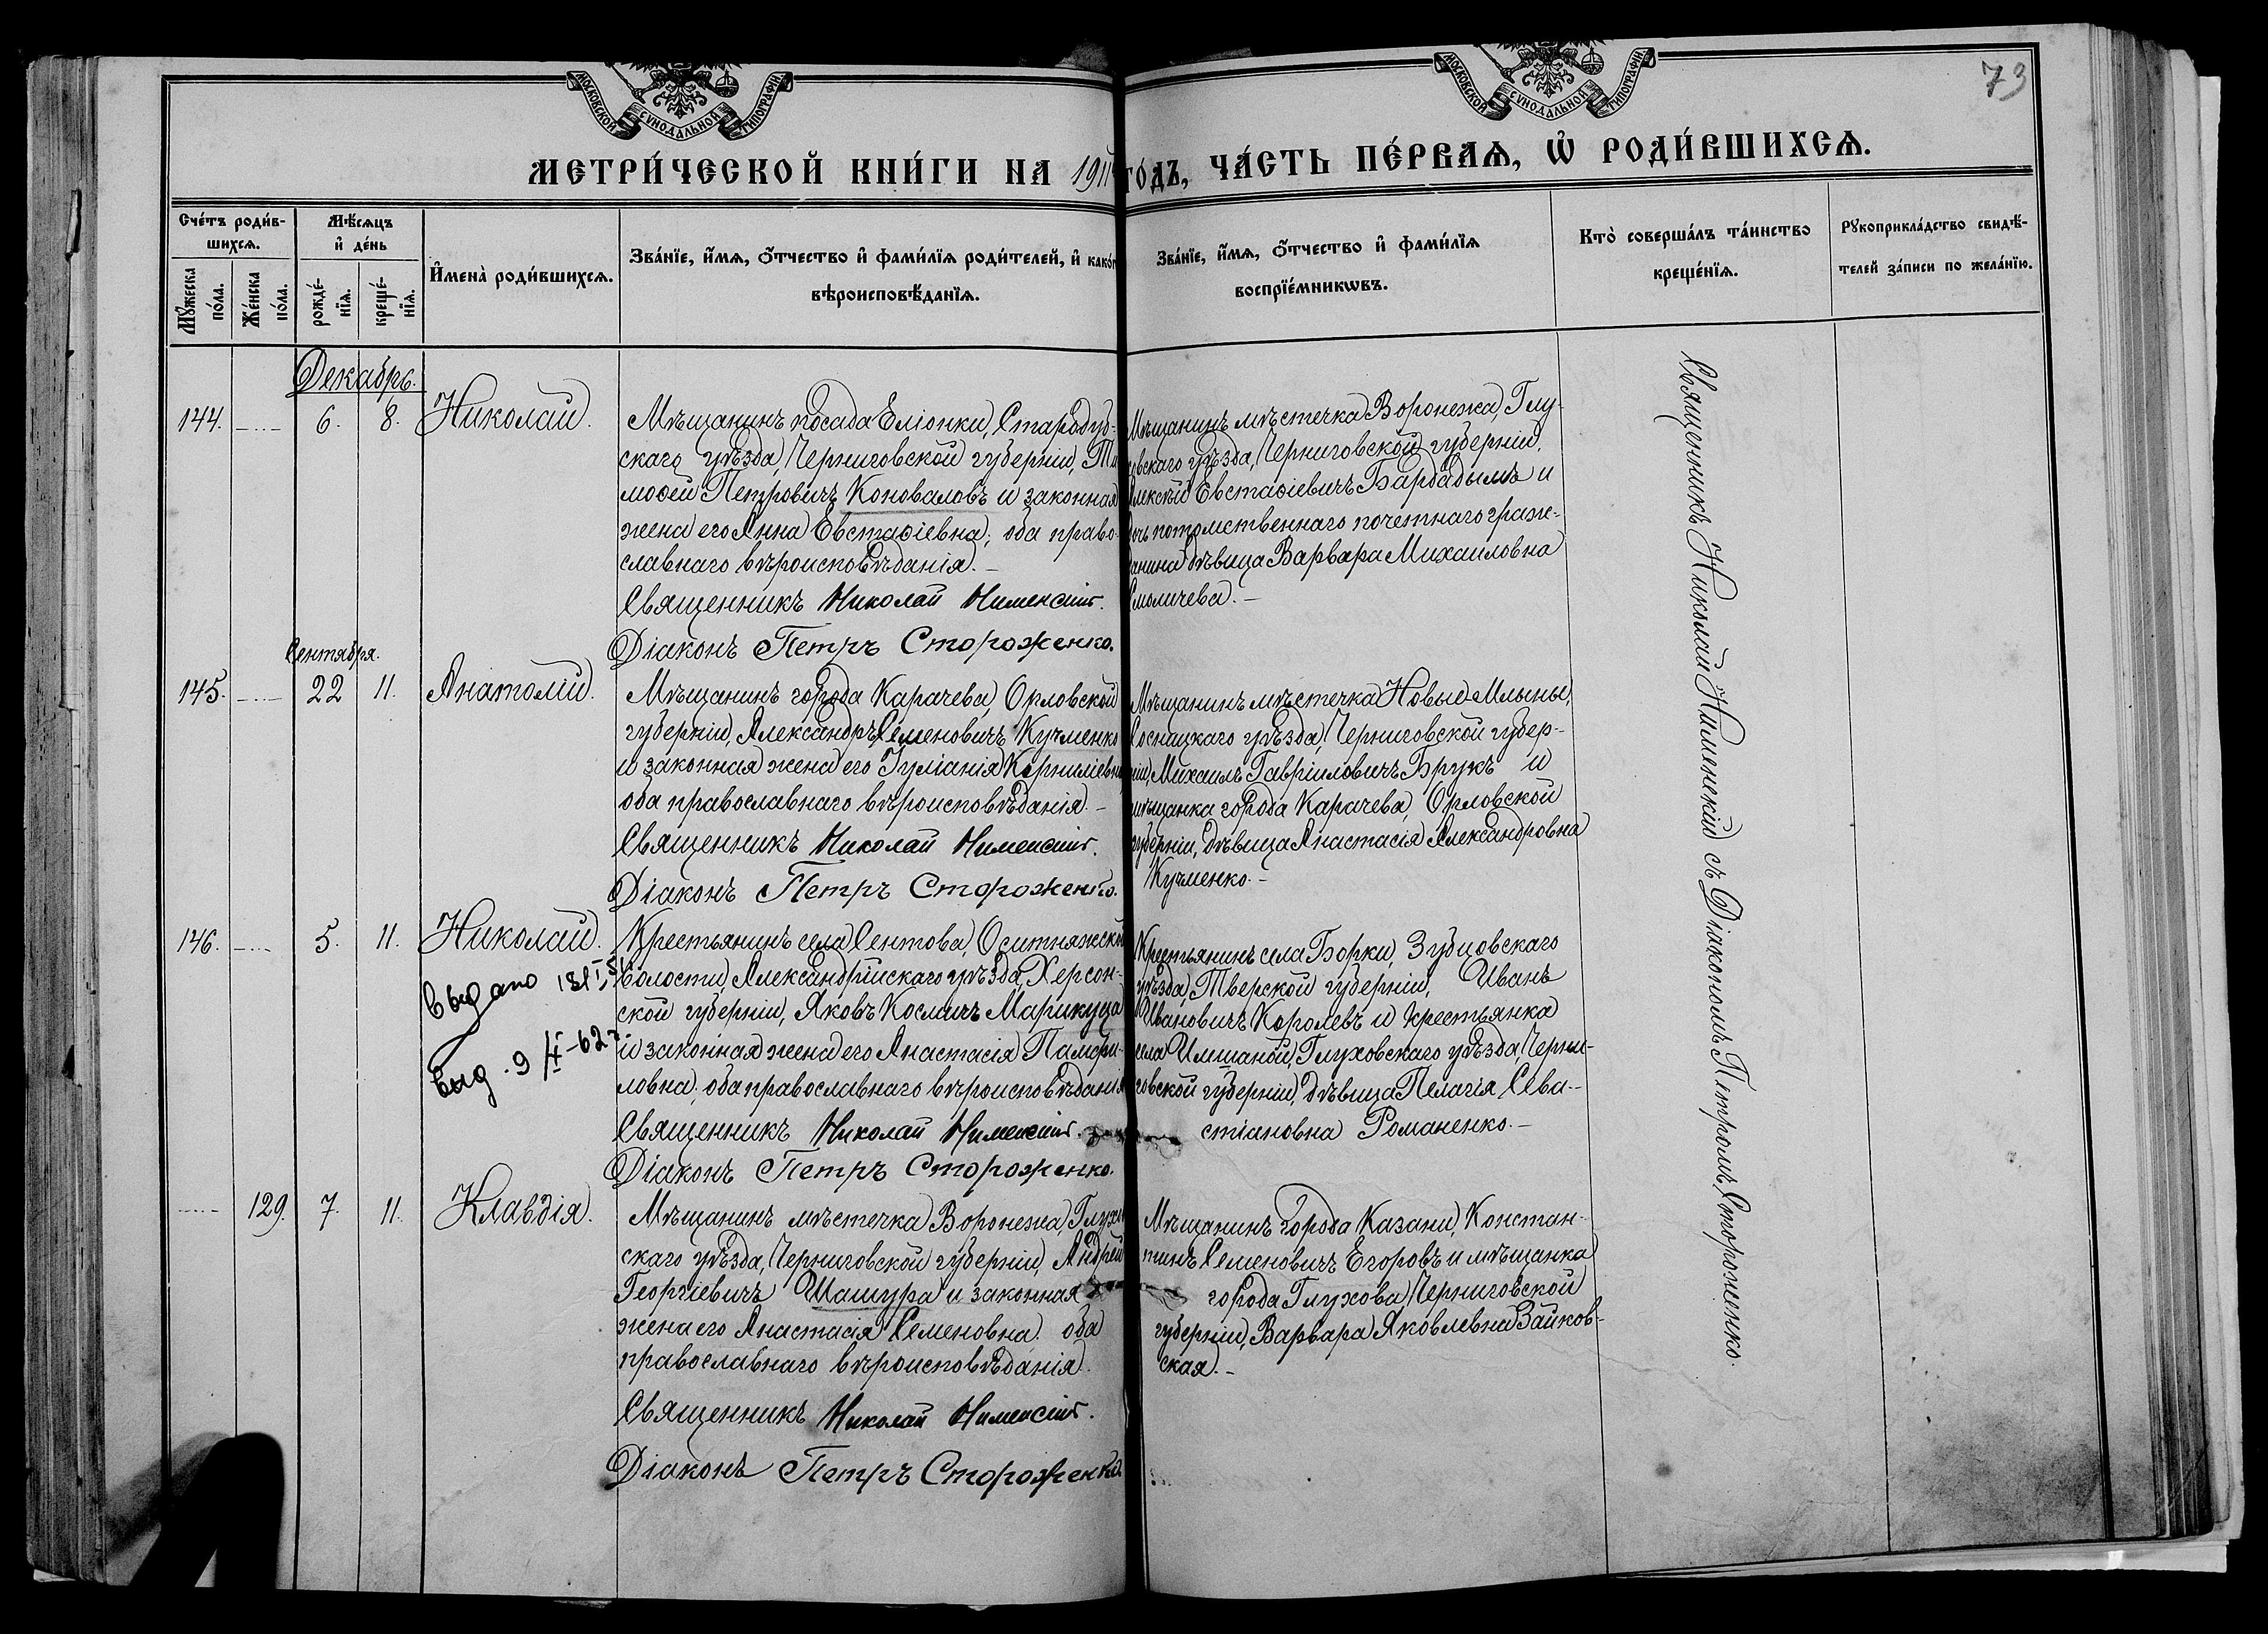 73
МОСКОВСКОЙ СѴНОДАЛЬНОЙ ТИПОГРАФІИ
МОСКОВСКОЙ СѴНОДАЛЬНОЙ ТИПОГРАФІИ
МЕТРИ́ЧЕСКОЙ КНИ́ГИ НА 1911 ГО́ДЪ, ЧА́СТЬ ПЕ́РВАѦ, Ѡ҆ РОДИ́ВШИХСѦ.
Сче́тъ роди́вшихсѧ.
Мꙋ́жеска по́ла.
Же́нска по́ла.
Мѣ́сѧцъ и҆ де́нь
рожде́нїѧ.
креще́нїѧ.
И҆мена̀ роди́вшихсѧ.
Зва́нїе, и҆́мѧ, ѻ҆́тчество и҆ фами́лїѧ роди́телей, и҆ како́г
вѣроисповѣ́данїѧ.
Зва́нїе, и҆́мѧ, ѻ҆́тчество и҆ фами́лїѧ
воспрїе́мникѡвъ.
Кто̀ соверша́лъ та́инство
креще́нїѧ.
Рꙋкоприкла́дство свидѣ́-
телей за́писи по жела́нїю.
Декабрь.
144. — 6. 8. Николай.
Мѣщанинъ посада Еліонки, Стародуб-
скаго уѣзда, Черниговской губерніи, Ти
моѳей Петровичъ Коноваловъ и законная
жена его Анна Евстаѳіевна; оба право-
славнаго вѣроисповѣданія. —
Священникъ Николай Нименскій.
Діаконъ Петръ Стороженко.
Мѣщанинъ мѣстечка Воронежа, Глу-
ховскаго уѣзда, Черниговской губерніи,
Алексѣй Евстаѳіевичъ Барбадымъ и
дочь потомственнаго почетнаго граж-
данина дѣвица Варвара Михаиловна
Смоличева. —
Сентября.
145. — 22 11. Анатолій.
Мѣщанинъ города Карачева, Орловской
губерніи, Александръ Семеновичъ Кучменко
и законная жена его Іуліанія Корниліевна,
оба православнаго вѣроисповѣданія. —
Священникъ Николай Нименскій.
Діаконъ Петръ Стороженко.
Мѣщанинъ мѣстечка Новые-Млыны,
Сосницкаго уѣзда, Черниговской губер-
ніи, Михаилъ Гавріиловичъ Брукъ и
мѣщанка города Карачева, Орловской
губерніи, дѣвица Анастасія Александровна
Кучменко. —
146. — 5. 11. Николай.
выдано
выд. 9
Крестьянинъ села Сентова, Оситняжской
волости, Александрійскаго уѣзда, Херсон-
ской губерніи, Яковъ Космичъ Марикуца
и законная жена его Анастасія Памфи-
ловна; оба православнаго вѣроисповѣданія
Священникъ Николай Нименскій.
Діаконъ Петръ Стороженко.
Крестьянинъ села Борки, Зубцовскаго
уѣзда, Тверской губерніи, Иванъ
Ивановичъ Королевъ и крестьянка
села Имшаной, Глуховскаго уѣзда, Черни-
говской губерніи, дѣвица Пелагія Сева-
стіановна Романенко. —
— 129. 7. 11. Клавдія.
Мѣщанинъ мѣстечка Воронежа, Глухов
скаго уѣзда, Черниговской губерніи, Андрей
Георгіевичъ Шашура и законная
жена его Анастасія Семеновна; оба
православнаго вѣроисповѣданія.
Священникъ Николай Нименскій.
Діаконъ Петръ Стороженко
Мѣщанинъ города Казани, Констан-
тинъ Семеновичъ Егоровъ и мѣщанка
города Глухова, Черниговской
губерніи, Варвара Яковлевна Зайков-
ская. —
Священникъ Николай Нименскій съ Діакономъ Петромъ Стороженко.